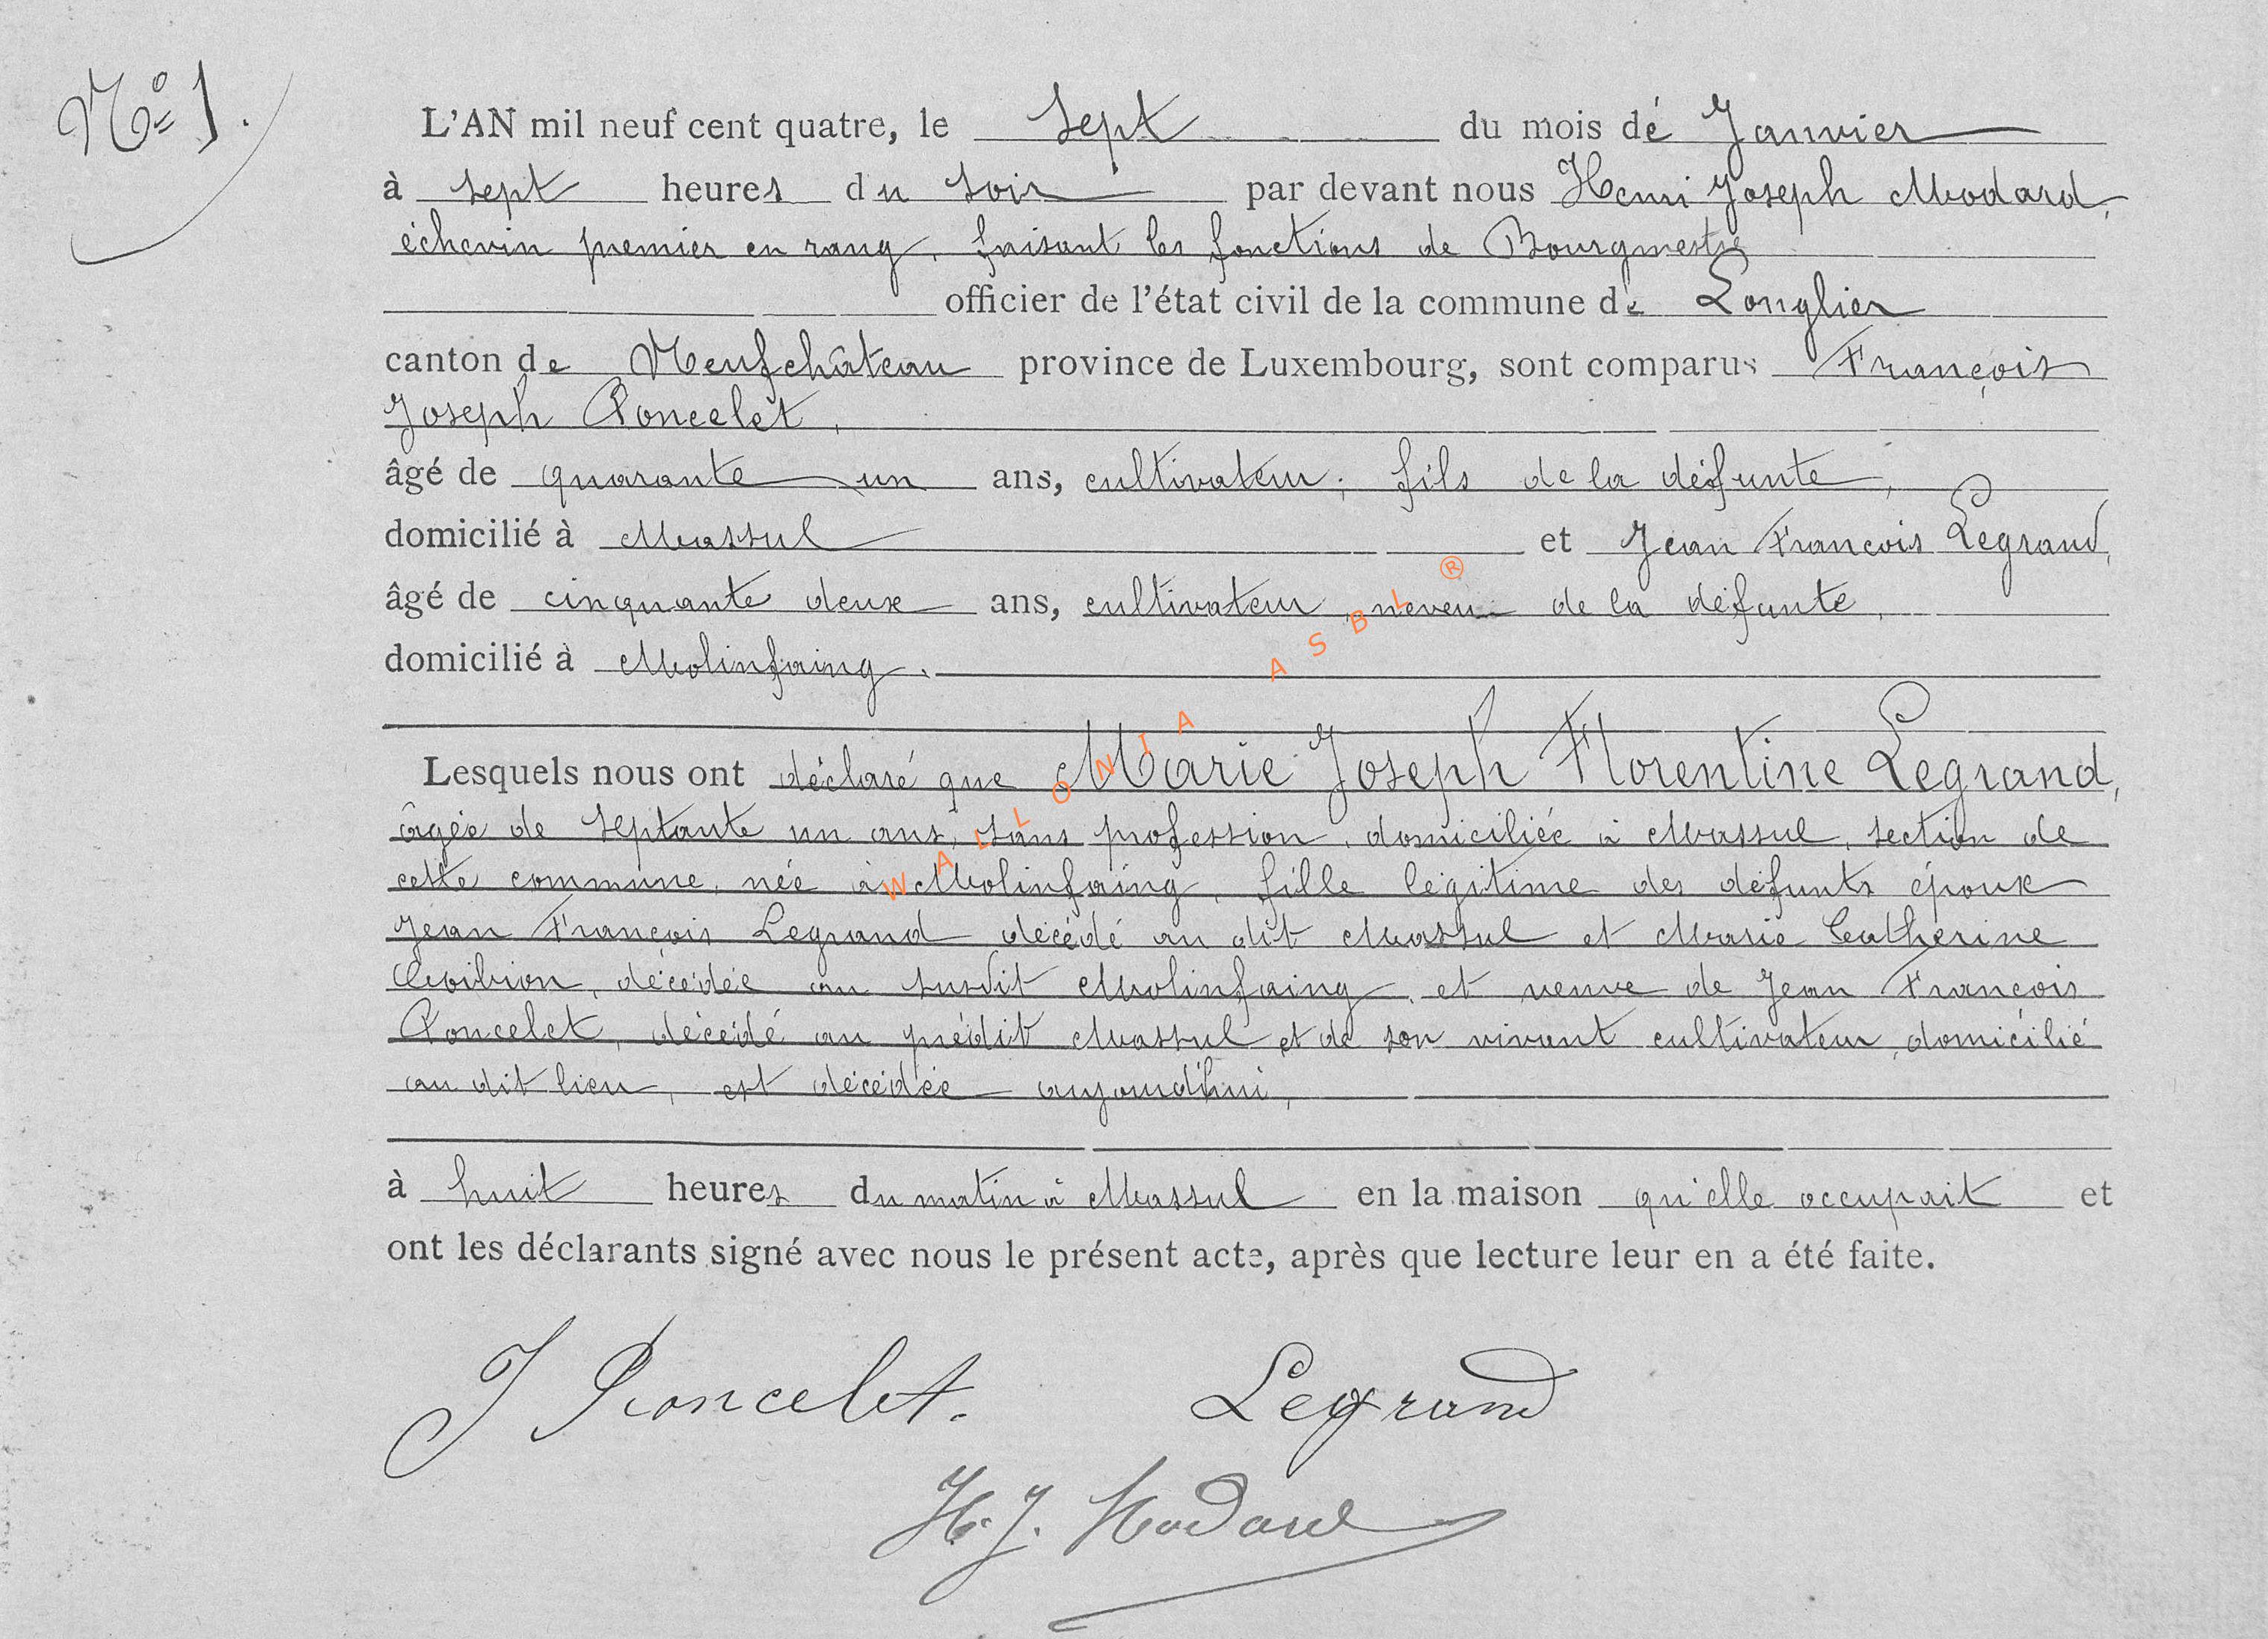 N° 1.
L'AN mil neuf cent quatre, le sept du mois de Janvier
à sept heures du soir par devant nous Henri Joseph Modard,
échevin premier en rang, faisant les fonctions de Bourgmestre
officier de l'état civil de la commune de Longlier
canton de Neufchâteau province de Luxembourg, sont comparus François
Joseph Poncelet,
âgé de quarante un ans, cultivateur, fils de la défunte,
domicilié à Massul et Jean François Legrand,
âgé de cinquante deux ans, cultivateur, neveu de la défunte,
domicilié à Molinfaing.
Lesquels nous ont déclaré que Marie Joseph Florentine Legrand,
âgée de septante un ans, sans profession, domiciliée à Massul, section de
cette commune, née à Molinfaing, fille légitime des défunts époux
Jean François Legrand décédé au dit Massul et Marie Catherine
décédée au susdit Molinfaing, et veuve de Jean François
Poncelet, décédé au prédit Massul et de son vivant cultivateur, domicilié
au dit lieu, est décédée aujourd'hui,
à huit heures du matin à Massul en la maison qu'elle occupait et
ont les déclarants signé avec nous le présent acte, après que lecture leur en a été faite.
J Poncelet. Legrand
H. J. Modard
WALLONIA ASBL ®